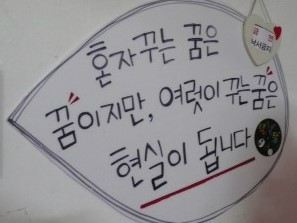 혼자 꾸는 꿈은
꿈이지만, 여럿이 꾸는 꿈은
현실이 됩니다
낙서금지